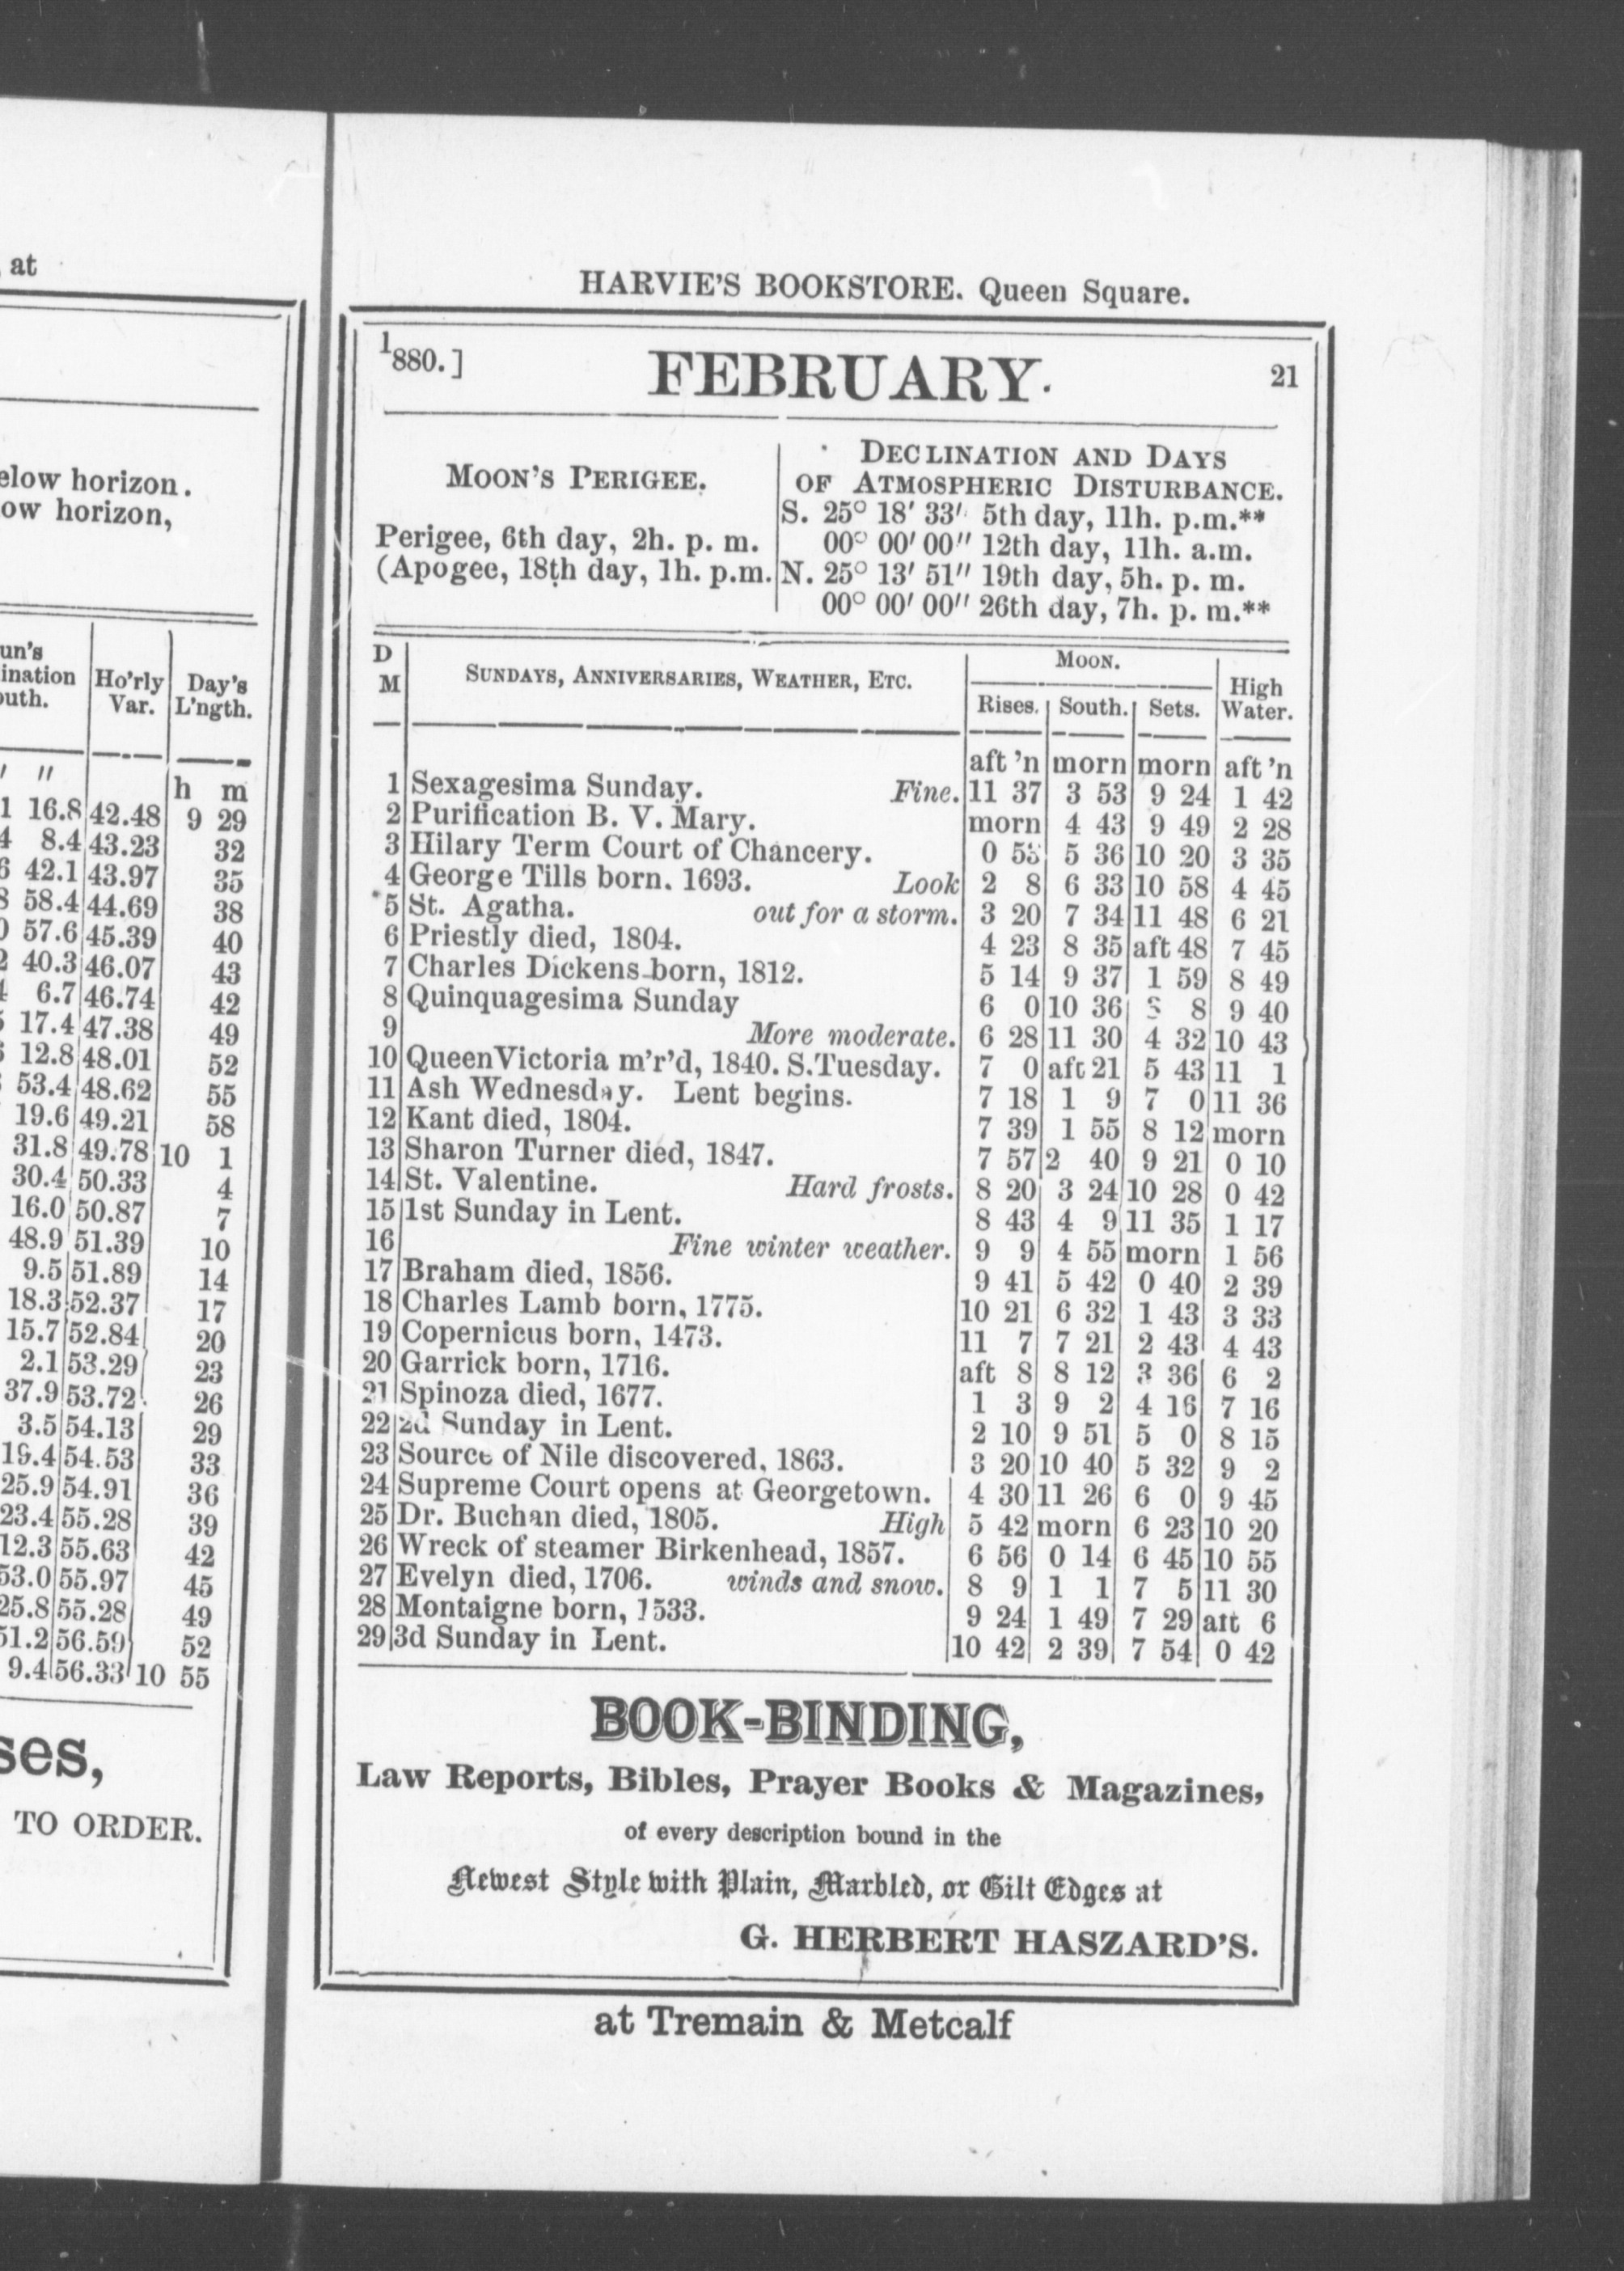 at
elow horizon.
ow horizon,
un's
ination
outh.
Ho'rly
Var.
Day's
L'ngth.
' "
h m
1 16.8 42.48 9 29
4 8.4 43.23 32
6 42.1 43.97 35
8 58.4 44.69 38
0 57.6 45.39 40
2 40.3 46.07 43
4 6.7 46.74 42
5 17.4 47.38 49
12.8 48.01 52
53.4 48.62 55
19.6 49.21 58
31.8 49.78 10 1
30.4 50.33 4
16.0 50.87 7
48.9 51.39 10
9.5 51.89 14
18.3 52.37 17
15.7 52.84 20
2.1 53.29 23
37.9 53.72 26
3.5 54.13 29
19.4 54.53 33
25.9 54.91 36
23.4 55.28 39
12.3 55.63 42
53.0 55.97 45
25.8 55.28 49
51.2 56.59 52
9.4 56.33 10 55
ses,
TO ORDER.
HARVIE'S BOOKSTORE. Queen Square.
1880.] FEBRUARY. 21
MOON'S PERIGEE.
Perigee, 6th day, 2h. p. m.
(Apogee, 18th day, 1h. p.m.
DECLINATION AND DAYS
OF ATMOSPHERIC DISTURBANCE.
S. 25° 18' 33' 5th day, 11h. p.m.**
00° 00' 00" 12th day, 11h. a.m.
N. 25° 13' 51" 19th day, 5h. p. m.
00° 00' 00" 26th day, 7h. p. m.**
D
M
SUNDAYS, ANNIVERSARIES, WEATHER, ETC.
MOON.
Rises. South. Sets.
High
Water.
aft'n morn morn aft'n
1 Sexagesima Sunday. Fine. 11 37 3 53 9 24 1 42
2 Purification B. V. Mary. morn 4 43 9 49 2 28
3 Hilary Term Court of Chancery. 0 5 5 36 10 20 3 35
4 George Tills born. 1693. Look 2 8 6 33 10 58 4 45
5 St. Agatha. out for a storm. 3 20 7 34 11 48 6 21
6 Priestly died, 1804. 4 23 8 35 aft 48 7 45
7 Charles Dickens born, 1812. 5 14 9 37 1 59 8 49
8 Quinquagesima Sunday 6 0 10 36 8 9 40
9 More moderate. 6 28 11 30 4 32 10 43
10 Queen Victoria m'r'd, 1840. S.Tuesday. 7 0 aft 21 5 43 11 1
11 Ash Wednesday. Lent begins. 7 18 1 9 7 0 11 36
12 Kant died, 1804. 7 39 1 55 8 12 morn
13 Sharon Turner died, 1847. 7 57 2 40 9 21 0 10
14 St. Valentine. Hard frosts. 8 20 3 24 10 28 0 42
15 1st Sunday in Lent. 8 43 4 9 11 35 1 17
16 Fine winter weather. 9 9 4 55 morn 1 56
17 Braham died, 1856. 9 41 5 42 0 40 2 39
18 Charles Lamb born, 1775. 10 21 6 32 1 43 3 33
19 Copernicus born, 1473. 11 7 7 21 2 43 4 43
20 Garrick born, 1716. aft 8 8 12 3 36 6 2
21 Spinoza died, 1677. 1 3 9 2 4 16 7 16
22 2d Sunday in Lent. 2 10 9 51 5 0 8 15
23 Source of Nile discovered, 1863. 3 20 10 40 5 32 9 2
24 Supreme Court opens at Georgetown. 4 30 11 26 6 0 9 45
25 Dr. Buchan died, 1805. High 5 42 morn 6 23 10 20
26 Wreck of steamer Birkenhead, 1857. 6 56 0 14 6 45 10 55
27 Evelyn died, 1706. winds and snow. 8 9 1 1 7 5 11 30
28 Montaigne born, 1533. 9 24 1 49 7 29 aft 6
29 3d Sunday in Lent. 10 42 2 39 7 54 0 42
BOOK-BINDING,
Law Reports, Bibles, Prayer Books & Magazines,
of every description bound in the
Newest Style with Plain, Marbled, or Gilt Edges at
G. HERBERT HASZARD'S.
at Tremain & Metcalf